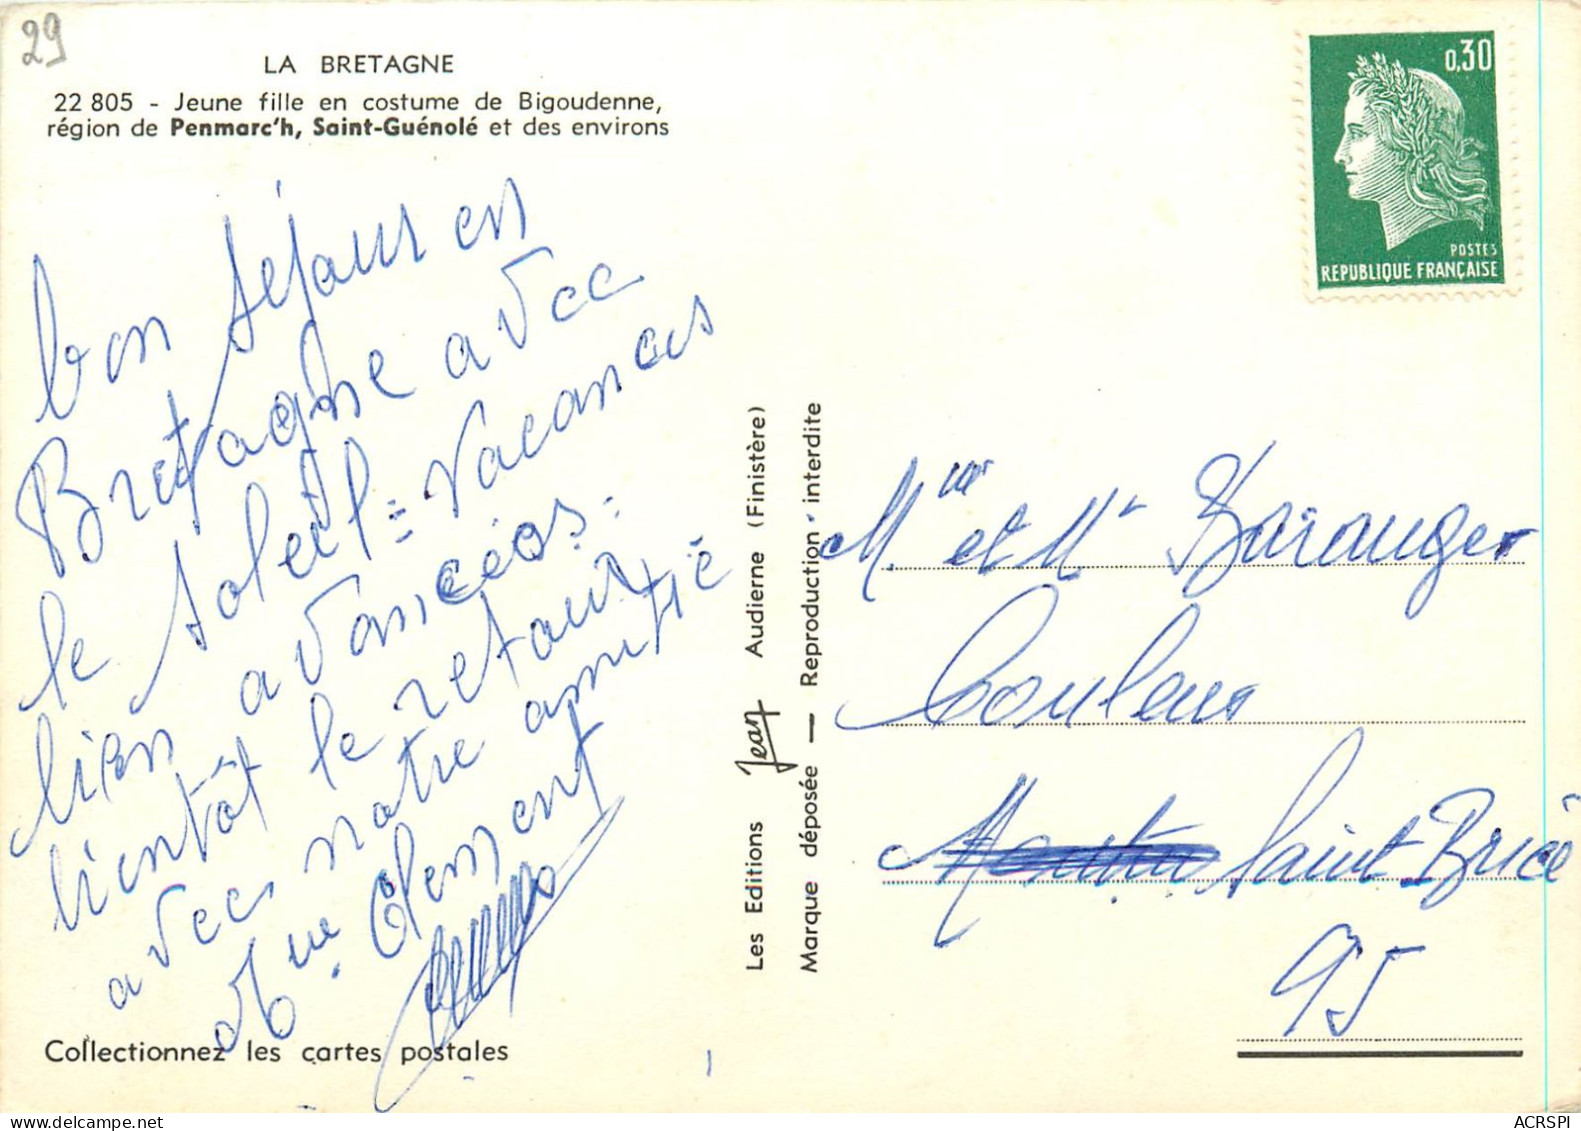 29
LA BRETAGNE
22 805 - Jeune fille en costume de Bigoudenne,
région de Penmarc'h, Saint-Guénolé et des environs
bon séjour en
Bretagne avec
le soleil = vacances
bien avancées.
bientôt le retour
avec notre amitié
Mme Clement
Collectionnez les cartes postales
Les Editions Jean Audierne (Finistère)
Marque déposée — Reproduction interdite
0,30
POSTES
REPUBLIQUE FRANÇAISE
Mme et Mr Baranger
Saint Brice
95
ACRSPI